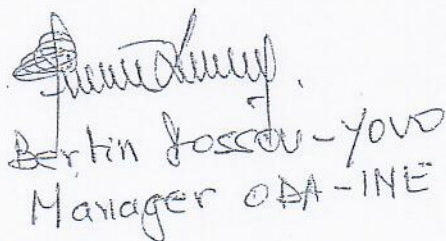 Bertin Sossou-YOVO
Manager ODA-INE